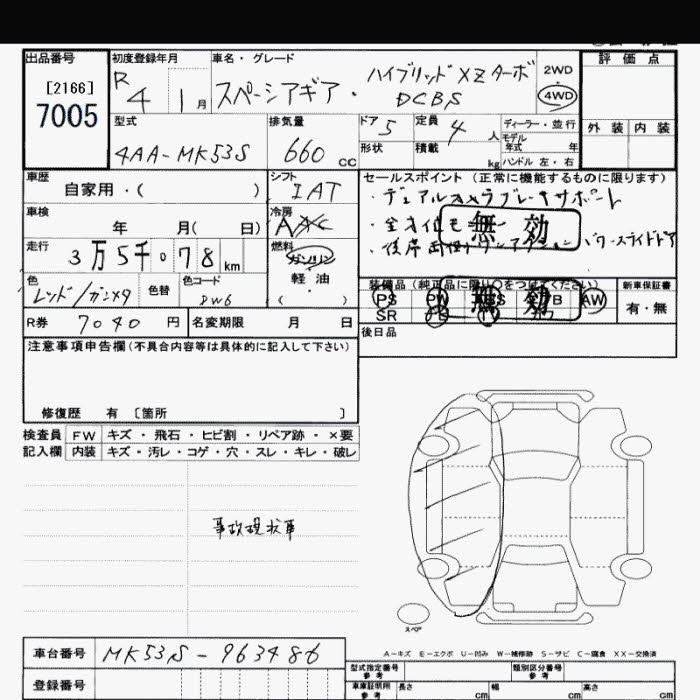 出品番号
[2166]
7005
初度登録年月
R 4 1 月
車名・グレード
スペーシアギア・ハイブリッドXZターボ
DCBS
2WD
4WD
評価点
外装 内装
型式
4AA-MK53S
排気量
660 cc
ドア 5
定員 4 人
形状
積載 kg
ディーラー・並行
モデル
年式 年
ハンドル 左・右
車歴
自家用・( )
シフト
IAT
セールスポイント (正常に機能するものに限ります)
・デュアルカメラブレーキサポート
無効
パワースライドドア
車検
年 月( 日)
冷房
AAC
走行
3万5千078 km
燃料
ガソリン
軽・油
( )
色
レッド/ガンメタ
色替
色コード
装備品 (純正品に限り○をつけてください)
PS PW AW
SR
無効
新車保証書
有・無
R券 7040 円
名変期限 月 日
後日品
注意事項申告欄(不具合内容等は具体的に記入して下さい)
修復歴 有 〔箇所 〕
検査員
記入欄
FW キズ・飛石・ヒビ割・リペア跡・×要
内装 キズ・汚レ・コゲ・穴・スレ・キレ・破レ
事故現状車
スペア
A―キズ E―エクボ U―凹み W―補修跡 S―サビ C―腐食 XX―交換済
車台番号 MK53S-963486
登録番号
型式指定番号
参考
類別区分番号
参考
車庫証明用
参考
長さ cm
幅 cm
高さ cm